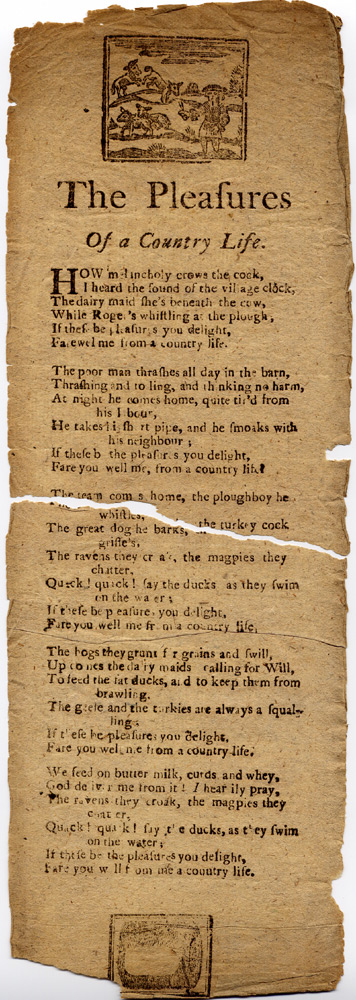 The Pleaſures
Of a Country Life.
HOW melincholy crows the cock,
I heard the ſound of the village clock,
The dairy maid ſhe's beneath the cow,
While Roger's whiſtling at the plough,
If theſe be pleaſures you delight,
Farewel me from a country life.
The poor man thraſhes all day in the barn,
Thraſhing and toiling, and thinking no harm,
At night he comes home, quite tir'd from
his labour,
He takes his ſhort pipe, and he ſmoaks with
his neighbour ;
If theſe be the pleaſures you delight,
Fare you well me, from a country life
The team comes home, the ploughboy he
whiſtles,
The great dog he barks, the turkey cock
griſtles,
The ravens they croak, the magpies they
chatter,
Quack ! quack ! ſay the ducks as they ſwim
on the water ;
If theſe be pleaſures you delight,
Fare you well me from a country life,
The hogs they grunt for grains and ſwill,
Up comes the dairy maids calling for Will,
To feed the fat ducks, and to keep them from
brawling,
The geeſe and the turkies are always a ſqual-
ling ;
If theſe be pleaſures you delight,
Fare you wel me from a country life,
We feed on butter milk, curds and whey,
God deliver me from it ! I heartily pray,
The ravens they croak, the magpies they
chatter,
Quack ! quack ! ſay the ducks, as they ſwim
on the water ;
If theſe be the pleaſures you delight,
Fare you well from me a country life.